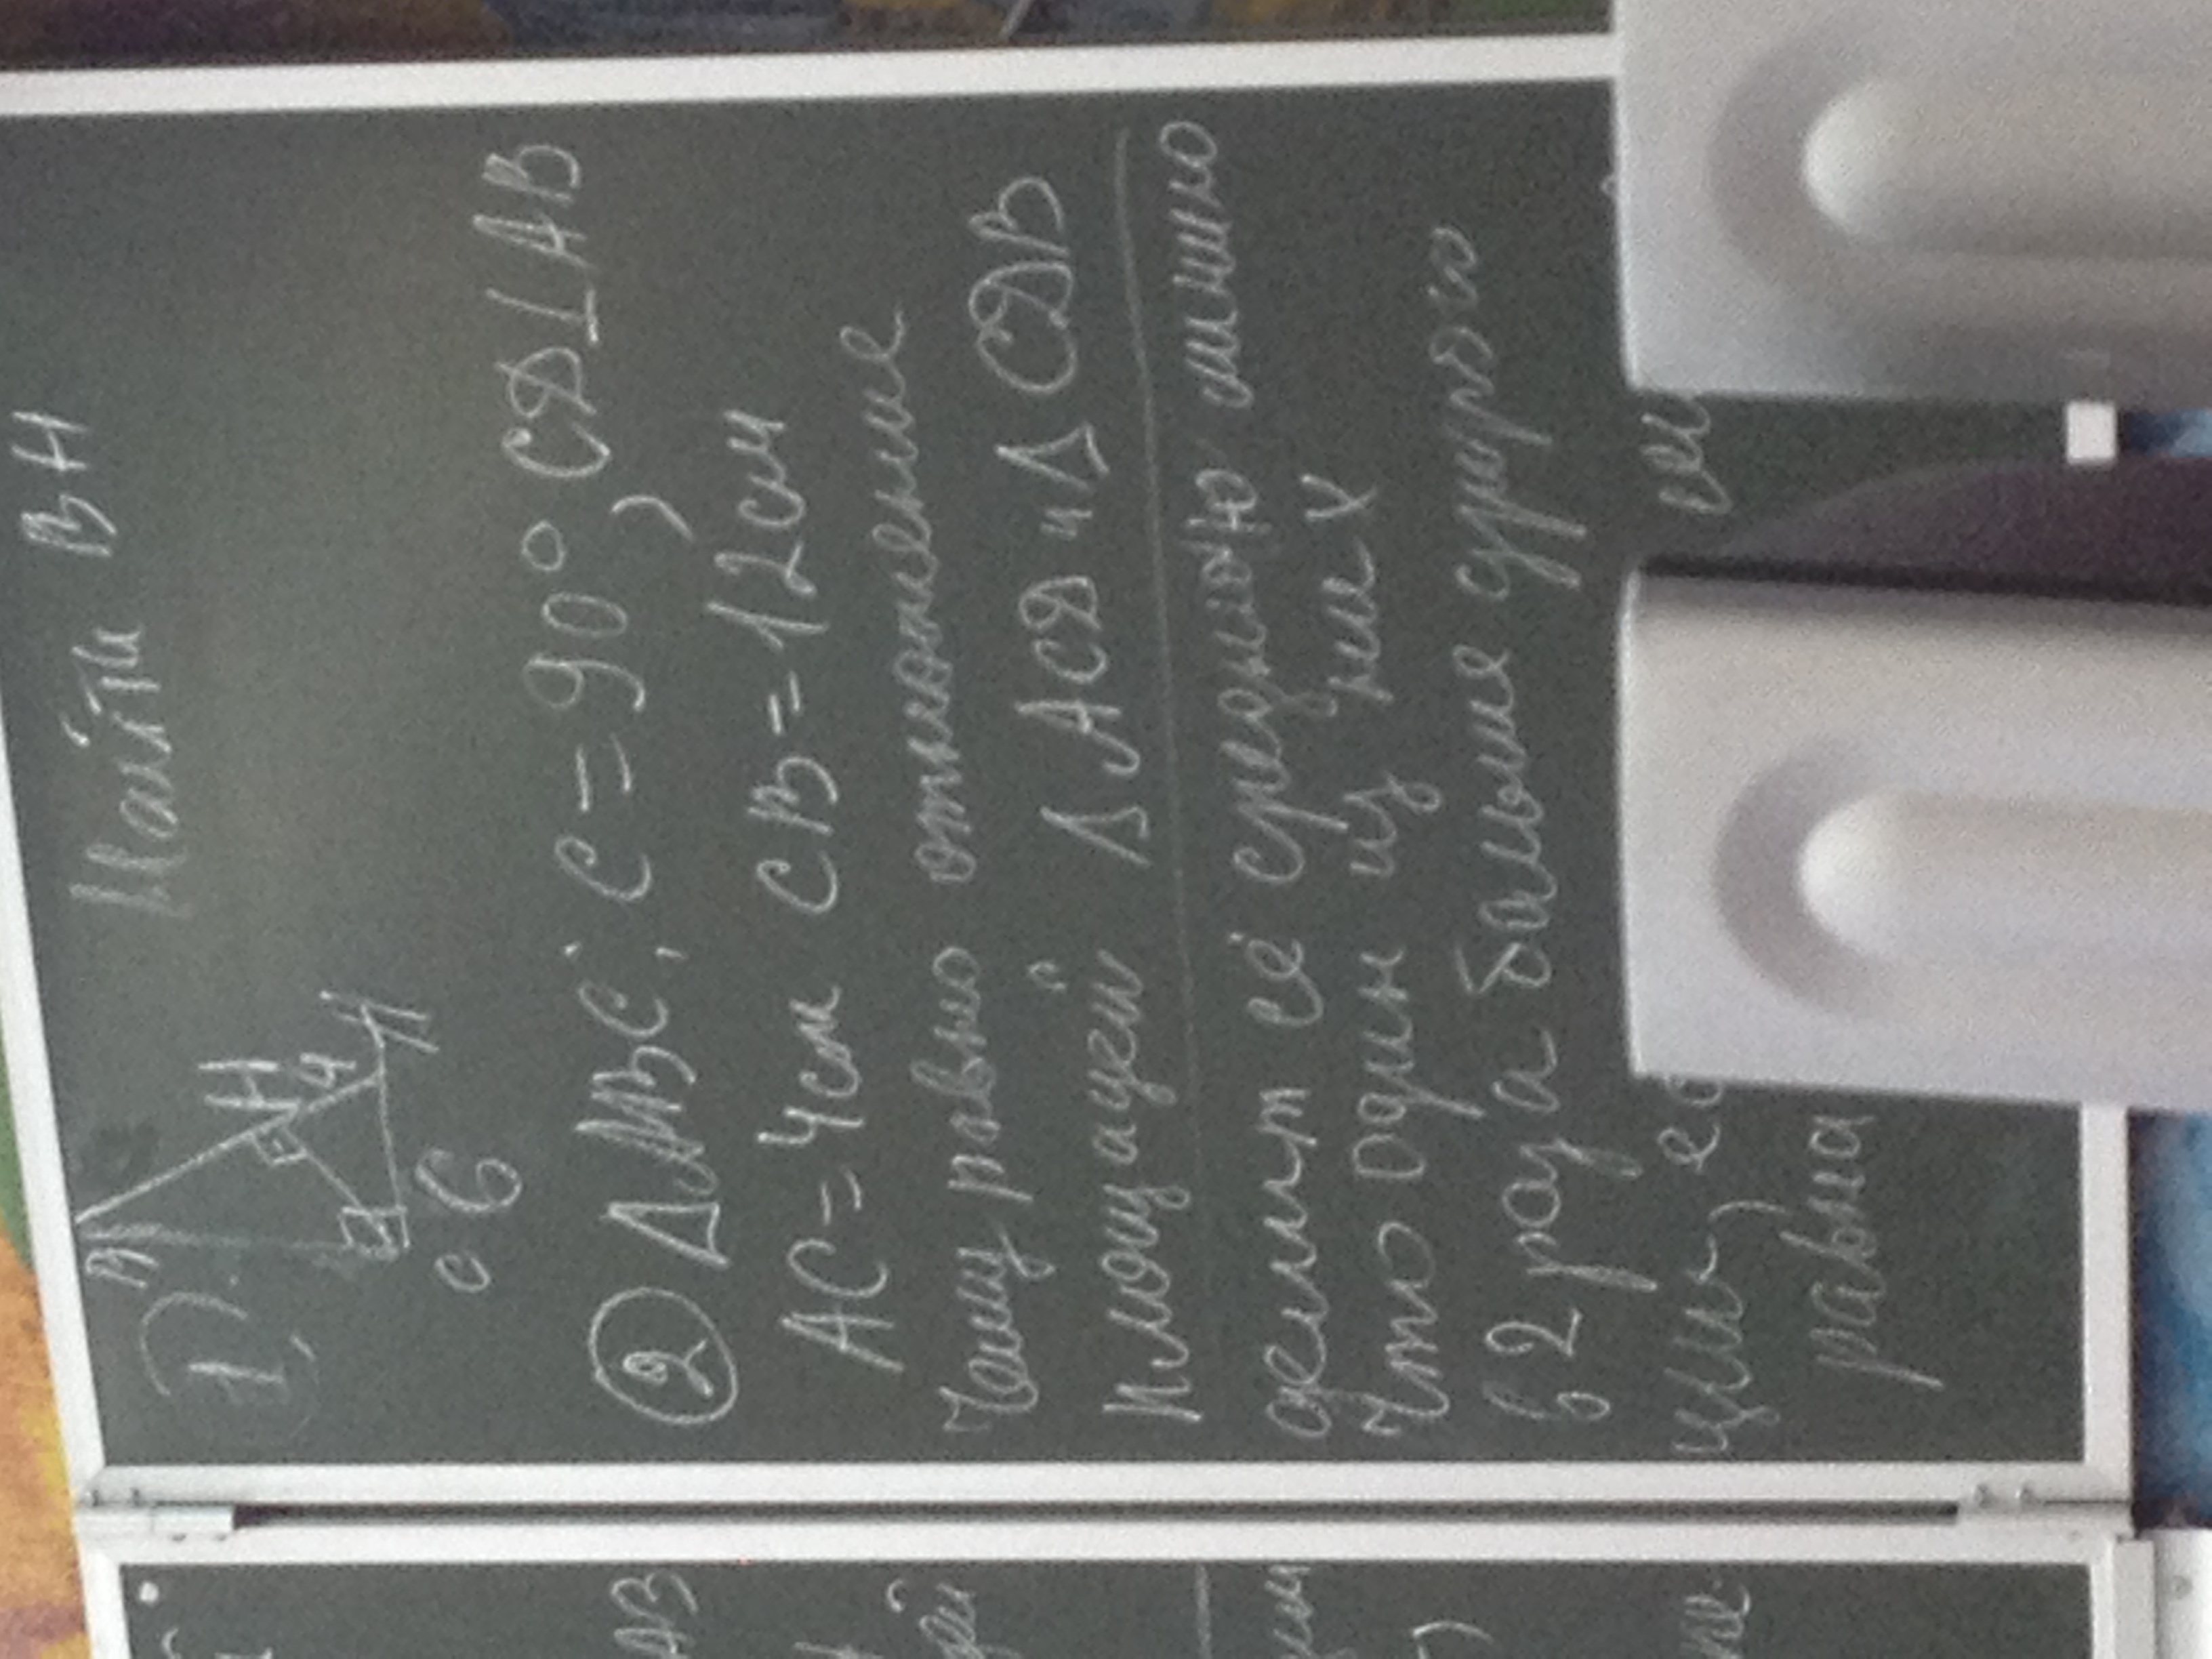 1) Найти BH
B
H
4
A
C 6
2 ΔABC; C = 90°, CД⊥AB
AC = 4см CB = 12см
Чему равно отношение
площадей ΔACД и ΔCДB
делит её среднюю линию
что один из них
в 2 раза больше друго
равна
AB